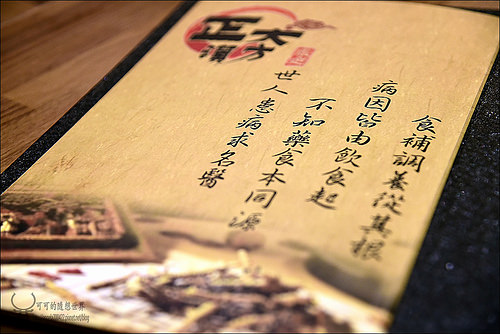 正大
漢方
食補調養從其根
病因皆由飲食起
不知藥食本同源
世人患病求名醫
可可的隨想世界